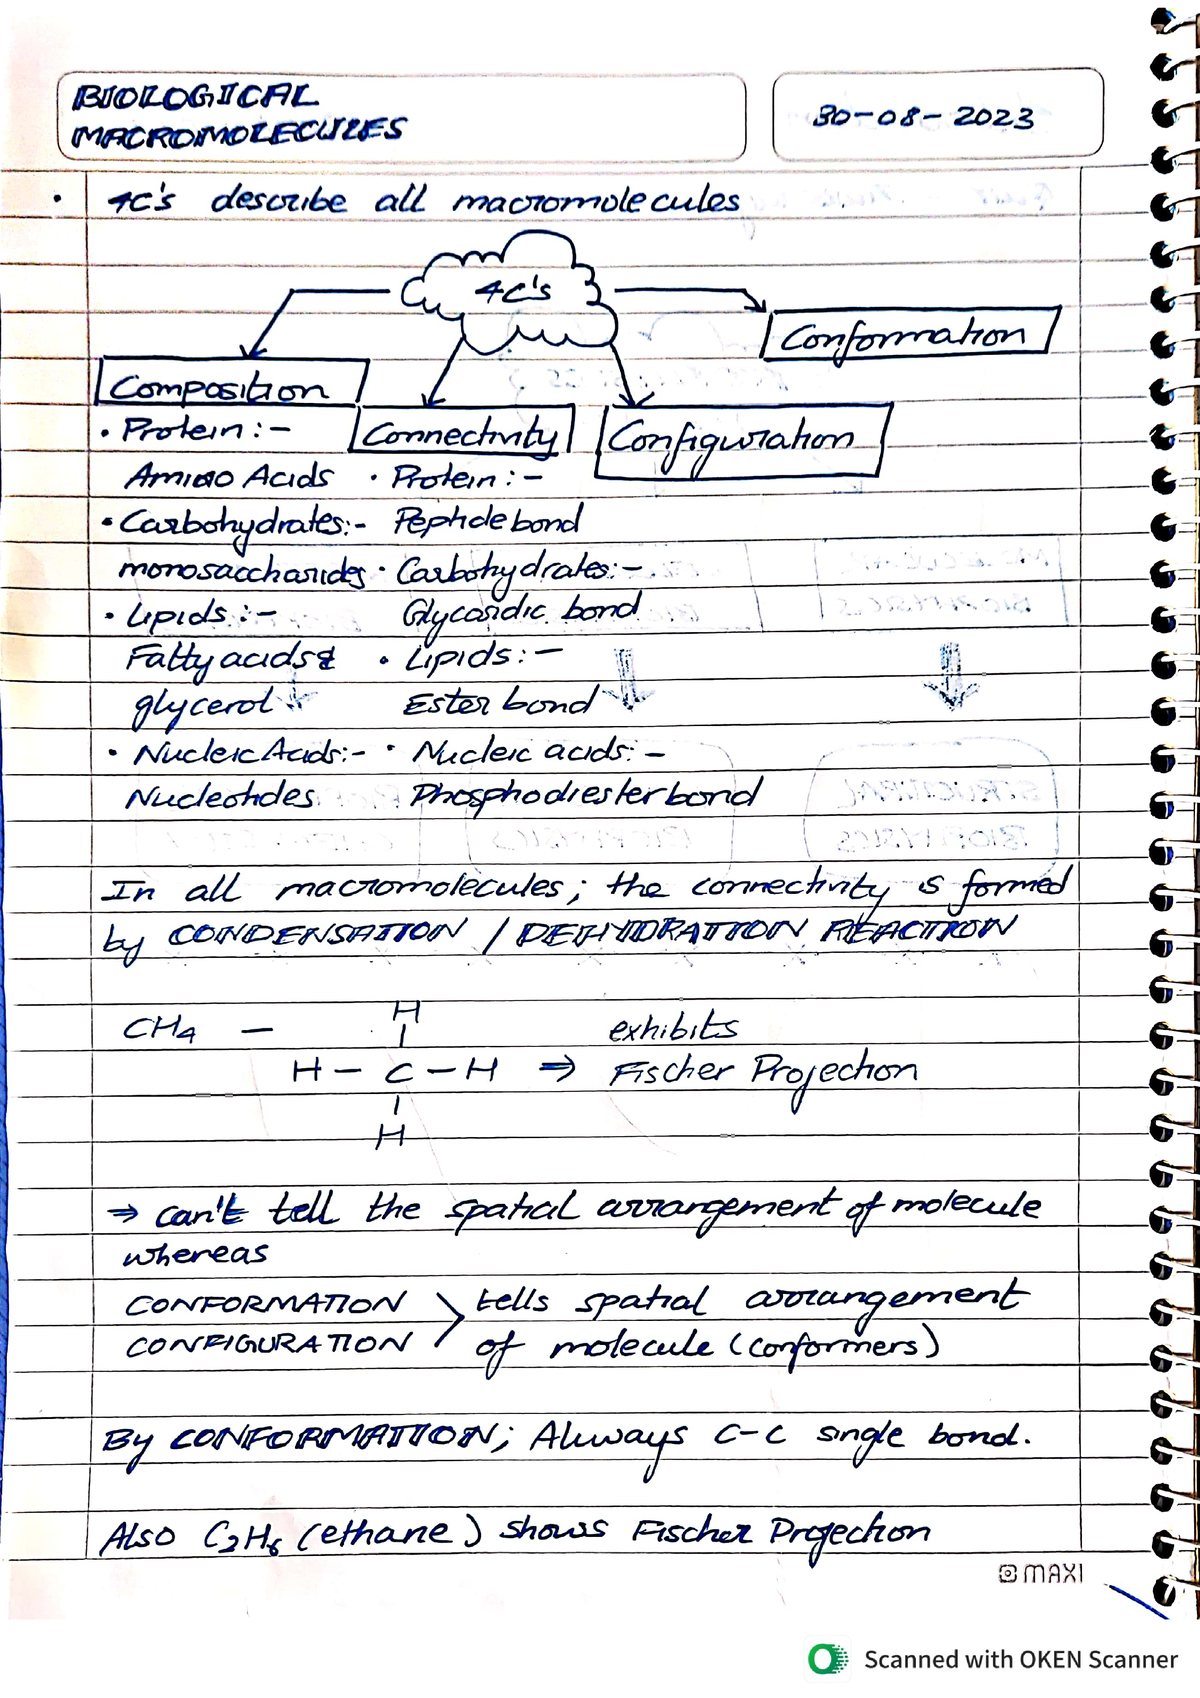 BIOLOGICAL
MACROMOLECULES
30-08-2023
• 4C's describe all macromolecules
4C's
Conformation
Composition
Connectivity
Configuration
• Protein :-
Amino Acids
• Carbohydrates:-
monosaccharides
• Lipids :-
Fatty acids &
glycerol
• Nucleic Acids:-
Nucleotides
• Protein :-
Peptide bond
• Carbohydrates:-
Glycosidic bond
• Lipids :-
Ester bond
• Nucleic acids: -
Phosphodiester bond
In all macromolecules; the connectivity is formed
by CONDENSATION / DEHYDRATION REACTION
H
CH4 — exhibits
H – C – H ⇒ Fischer Projection
H
⇒ can't tell the spatial arrangement of molecule
whereas
CONFORMATION > tells spatial arrangement
CONFIGURATION of molecule (conformers)
By CONFORMATION; Always C-C single bond.
Also C2H6 (ethane) shows Fischer Projection
MAXI
Scanned with OKEN Scanner